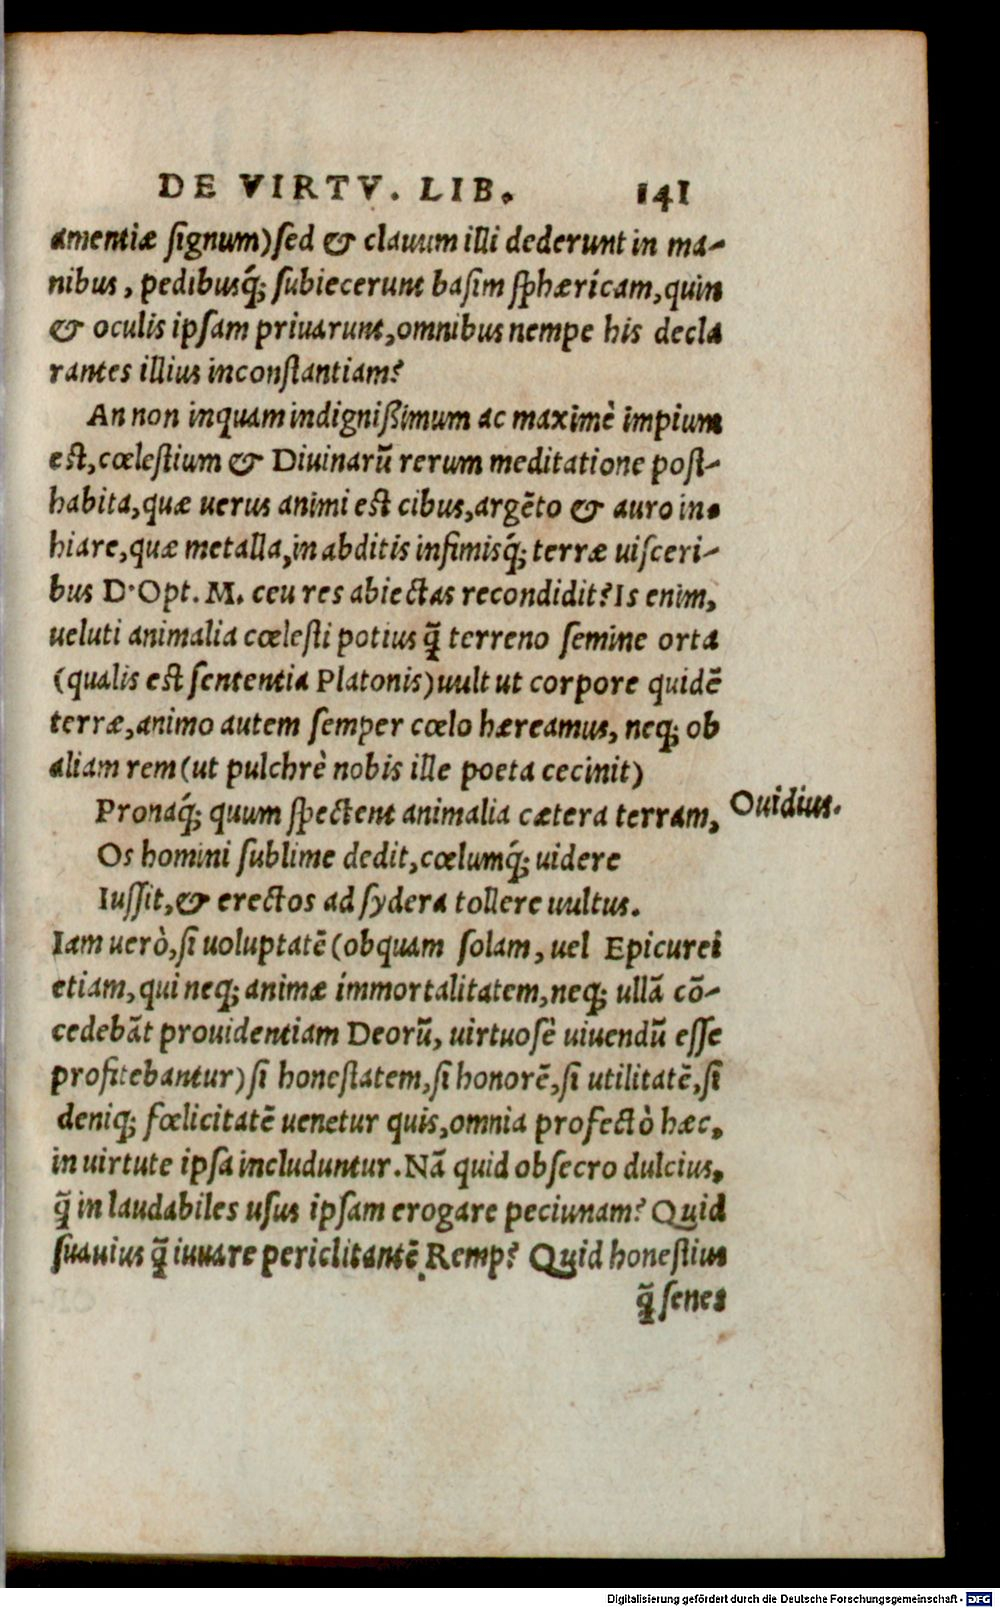 DE VIRTV. LIB. 141
amentiæ ſignum)ſed & clauum illi dederunt in ma-
nibus, pedibusq́; ſubiecerunt baſim ſphæricam,quin
& oculis ipſam priuarunt,omnibus nempe his decla
rantes illius inconſtantiam?
An non inquam indignißimum ac maximè impium
eſt,cœleſtium & Diuinarũ rerum meditatione poſt-
habita,quæ uerus animi eſt cibus,argẽto & auro in-
hiare,quæ metalla,in abditis infimisq́; terræ uiſceri-
bus D. Opt. M. ceu res abiectas recondidit?Is enim,
ueluti animalia cœleſti potius q̃ terreno ſemine orta
(qualis eſt ſententia Platonis)uult ut corpore quidẽ
terræ,animo autem ſemper cœlo hæreamus, neq; ob
aliam rem(ut pulchrè nobis ille poeta cecinit)
Pronaq́; quum ſpectent animalia cætera terram,
Ouidius.
Os homini ſublime dedit,cœlumq́; uidere
Iuſſit,& erectos ad ſydera tollere uultus.
Iam uerò,ſi uoluptatẽ(obquam ſolam, uel Epicurei
etiam,qui neq; animæ immortalitatem,neq; ullã cõ-
cedebãt prouidentiam Deorũ, uirtuoſè uiuendũ eſſe
profitebantur)ſi honeſtatem,ſi honorẽ,ſi utilitatẽ,ſi
deniq; fœlicitatẽ uenetur quis,omnia profectò hæc,
in uirtute ipſa includuntur.Nã quid obſecro dulcius,
q̃ in laudabiles uſus ipſam erogare peciunam? Quid
ſuauius q̃ iuuare periclitantẽ Remp? Quid honeſtius
q̃ ſenes
Digitalisierung gefördert durch die Deutsche Forschungsgemeinschaft - DFG